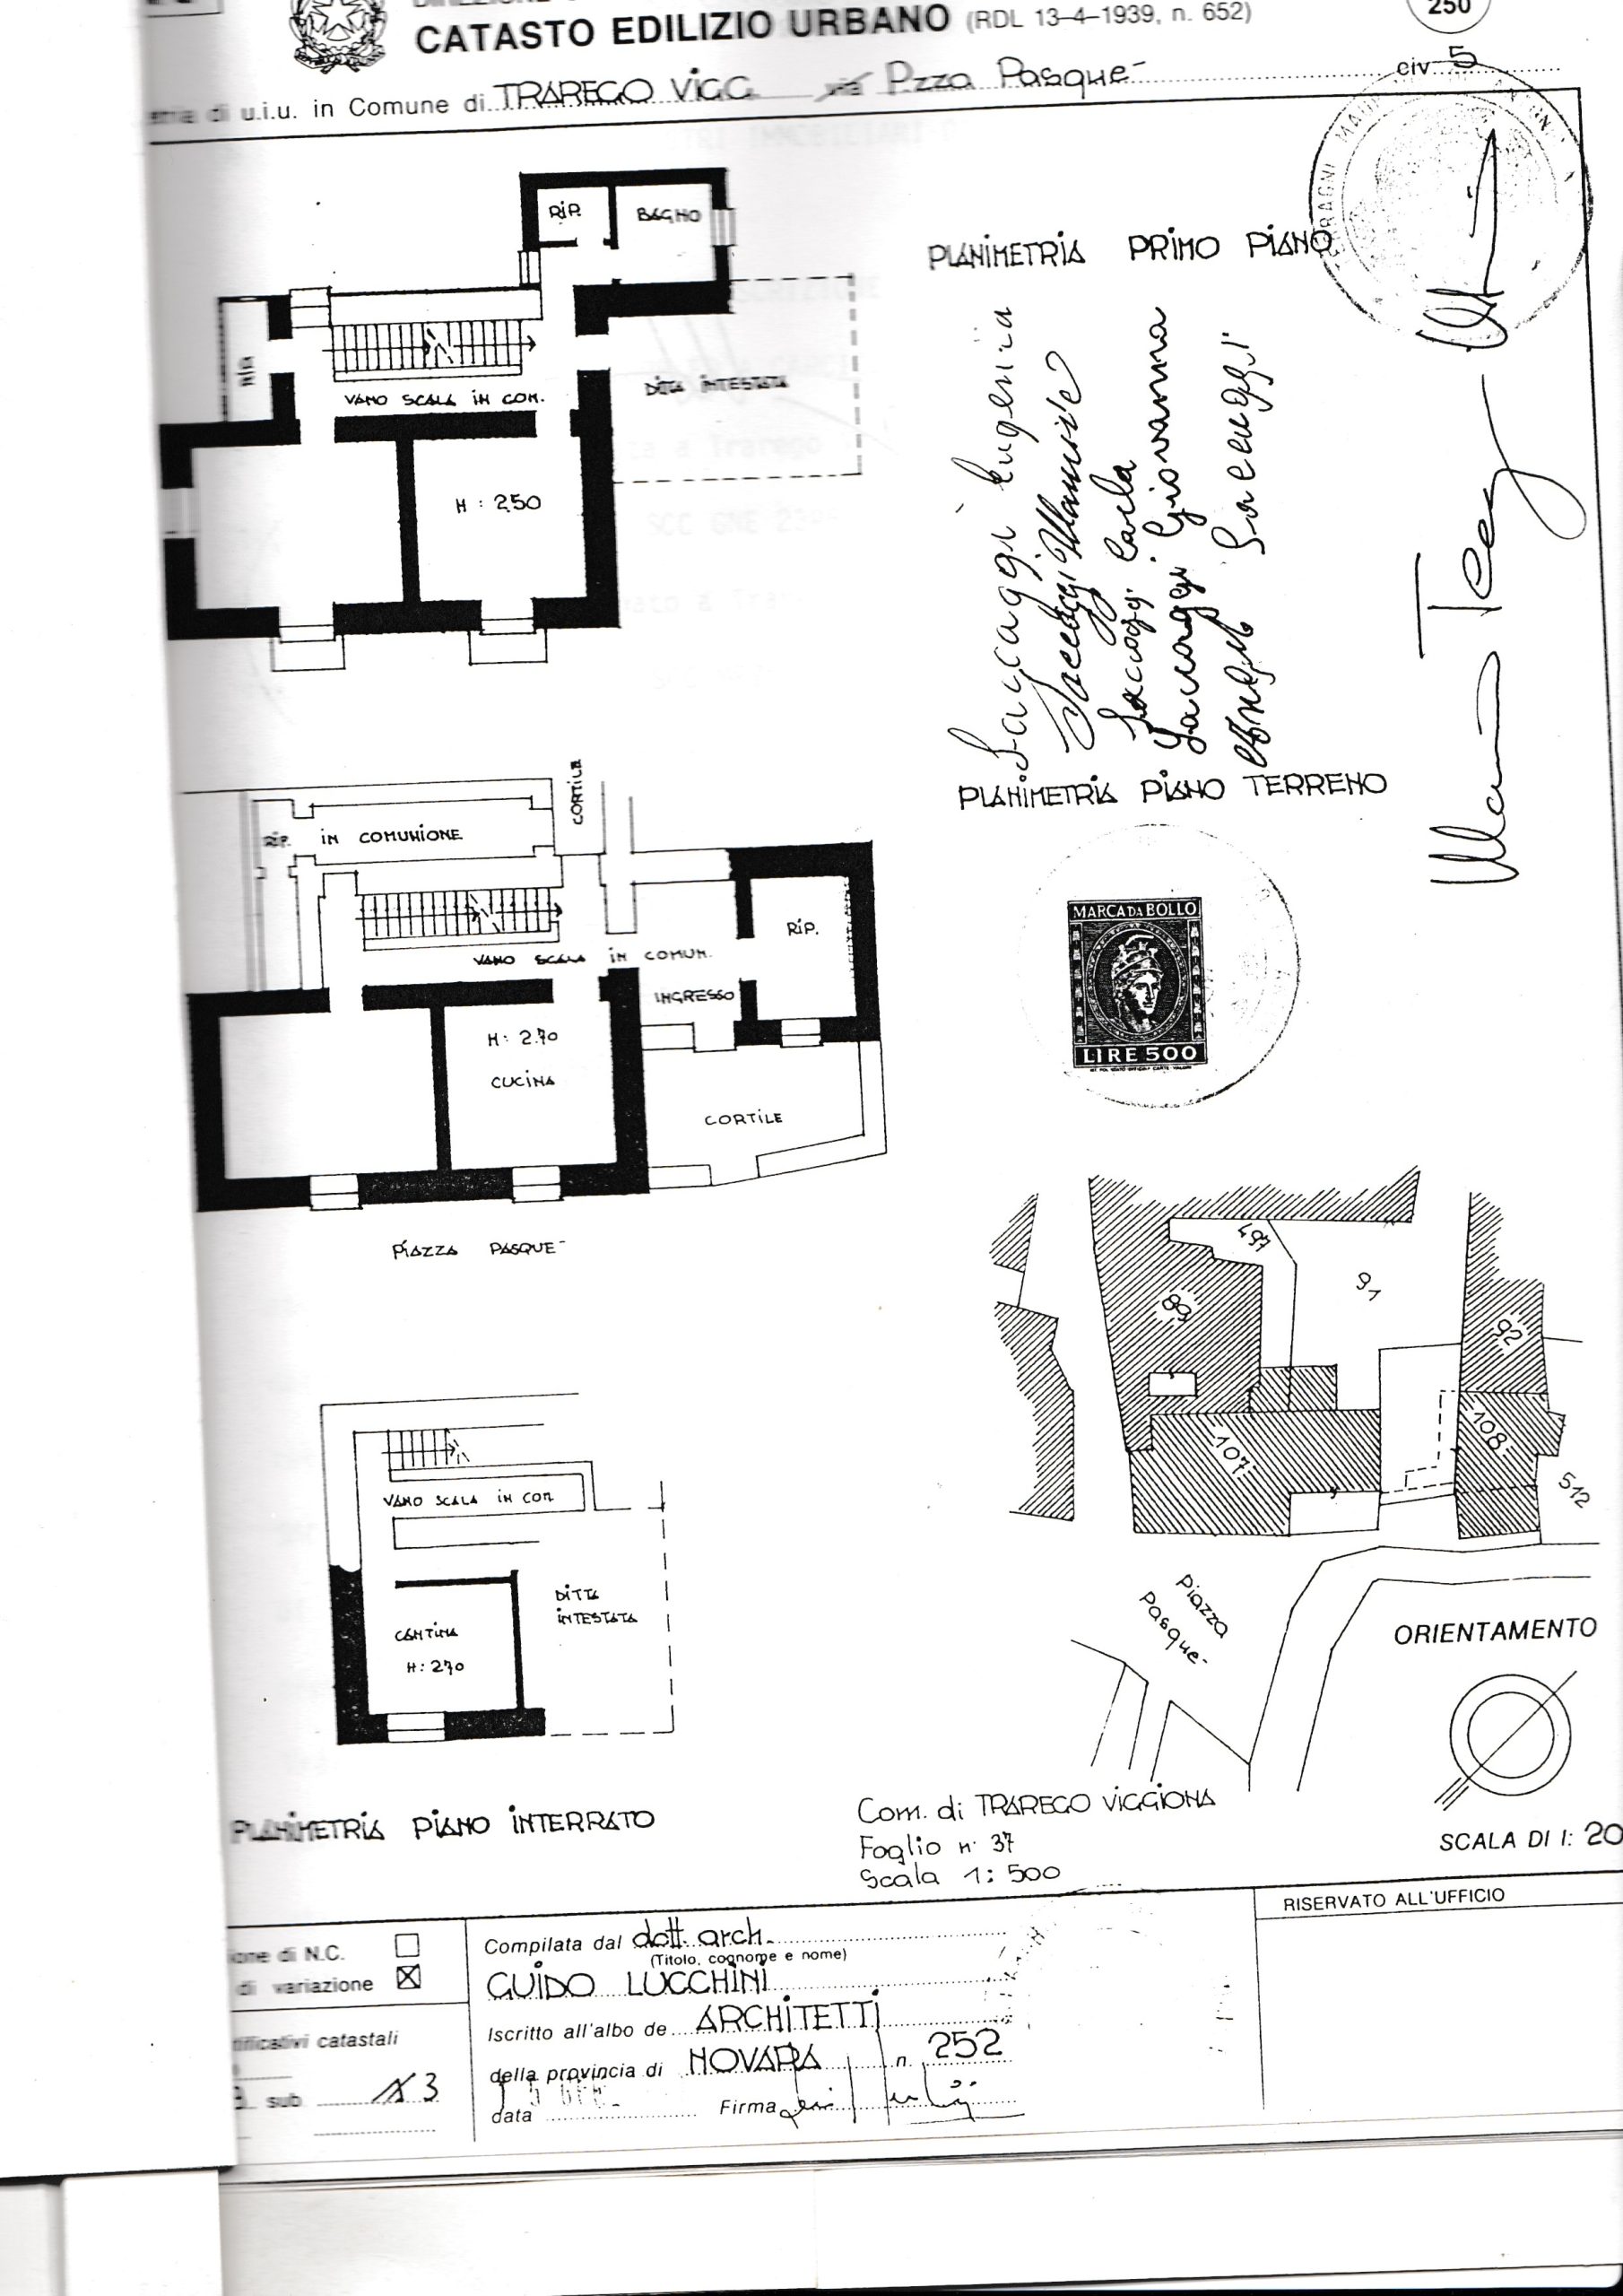 250
CATASTO EDILIZIO URBANO (RDL 13-4-1939, n. 652)
di u.i.u. in Comune di TRAREGO VIGG. via P.zza Pasquè civ. 5
RIP. BAGNO
PLANIMETRIA PRIMO PIANO
RIP.
VANO SCALA IN COM.
DITTA INTESTATA
H : 2.50
Saccaggi Eugenia
Saccaggi
Saccaggi Carla
Saccaggi Giovanna
Saccaggi
PLANIMETRIA PIANO TERRENO
CORTILE
RIP. IN COMUNIONE
RIP.
VANO SCALA IN COMUN.
INGRESSO
H: 2.70
CUCINA
CORTILE
PIAZZA PASQUE-
MARCA DA BOLLO
LIRE 500
497
91
89
92
107
108
512
Piazza
Pasque-
VANO SCALA IN COM
DITTA
INTESTATA
CANTINA
H: 2.70
ORIENTAMENTO
PLANIMETRIA PIANO INTERRATO
Com. di TRAREGO VIGGIONA
Foglio n. 37
Scala 1: 500
SCALA DI 1: 20
RISERVATO ALL'UFFICIO
ione di N.C.
di variazione
Compilata dal dott. arch.
(Titolo, cognome e nome)
GUIDO LUCCHINI
Iscritto all'albo de ARCHITETTI
della provincia di NOVARA n. 252
data Firma
tificativi catastali
sub. 3